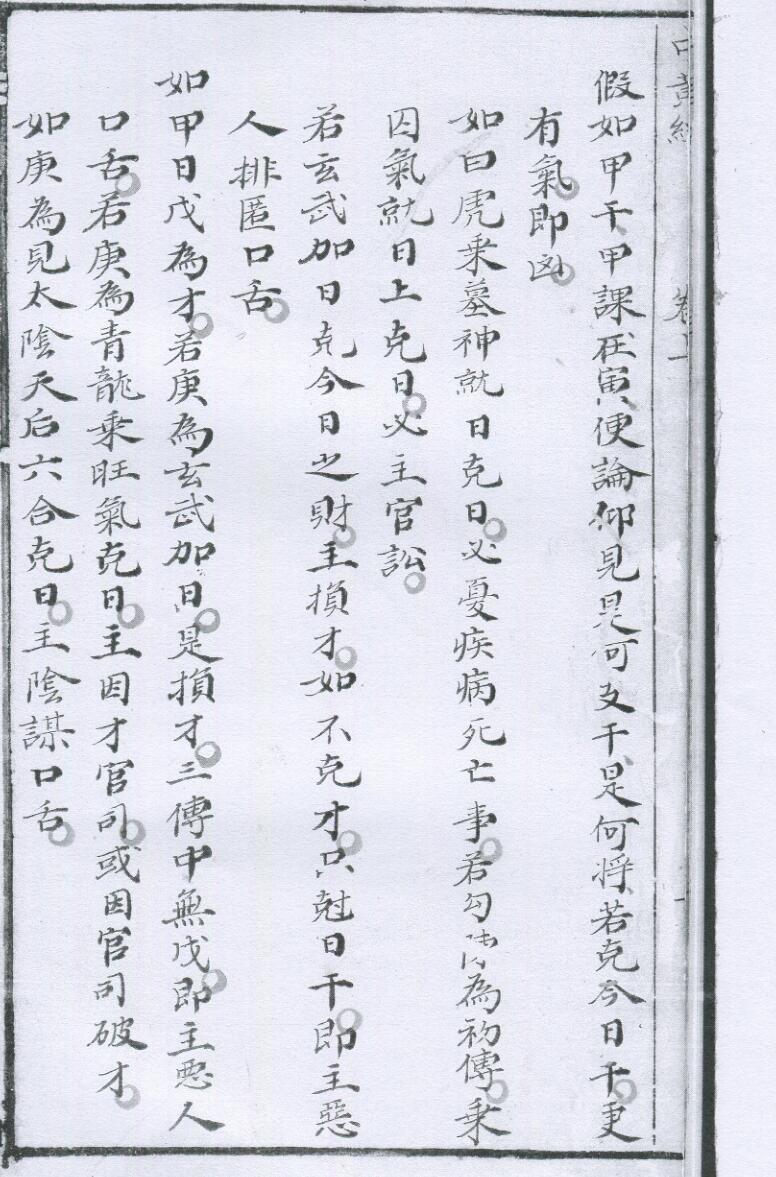 中黃經 卷上
假如甲干甲課在寅便論仰見是何支干是何將若克今日干更
有氣即凶
如白虎乘墓神就日克日必憂疾病死亡事若勾陳為初傳乘
囚氣就日上克日必主官訟
若玄武加日克今日之財主損才如不克才只尅日干即主惡
人排匿口舌
如甲日戊為才若庚為玄武加日是損才三傳中無戊即主恶人
口舌若庚為青龍乘旺氣克日主因才官司或因官司破才
如庚為見太陰天后六合克日主陰謀口舌